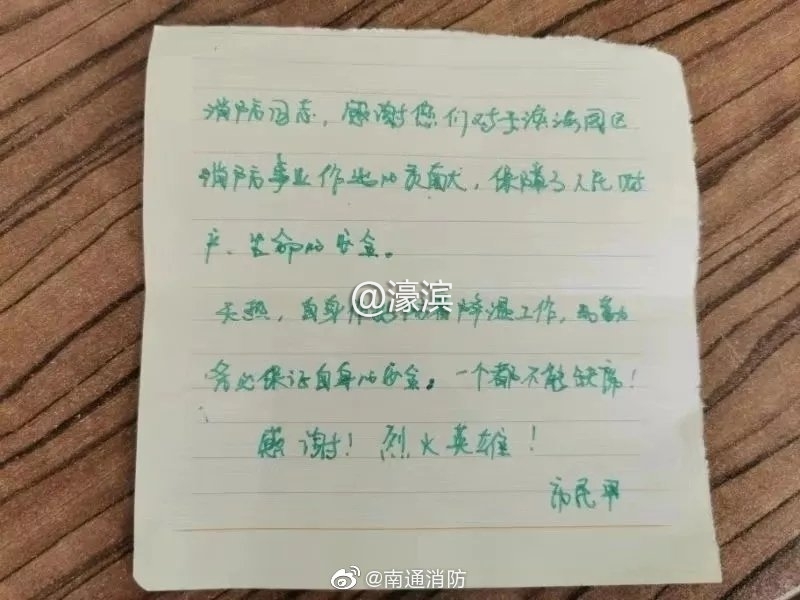 消防同志，感谢您们对于滨海园区
消防事业作出的贡献，保障了人民财
产、生命的安全。
@濠滨
天热，自身作好降温工作，
务必保证自身的安全。一个都不能缺席！
感谢！烈火英雄！
市民甲
@南通消防